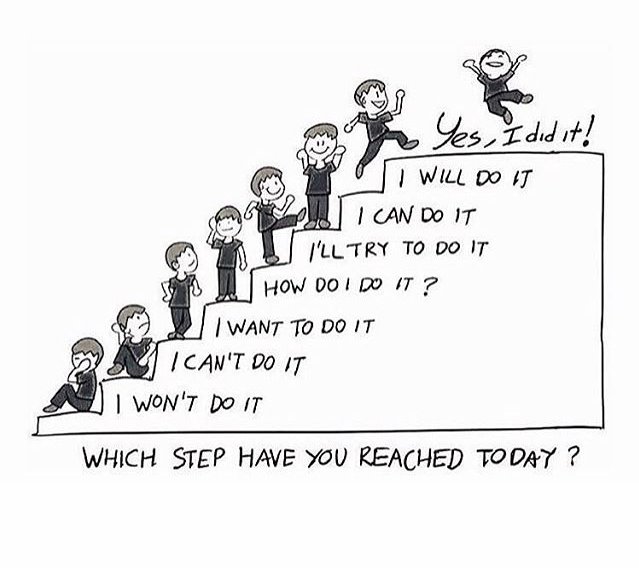 Yes, I did it!
I WILL DO IT
I CAN DO IT
I'LL TRY TO DO IT
HOW DO I DO IT ?
I WANT TO DO IT
I CAN'T DO IT
I WON'T DO IT
WHICH STEP HAVE YOU REACHED TODAY ?